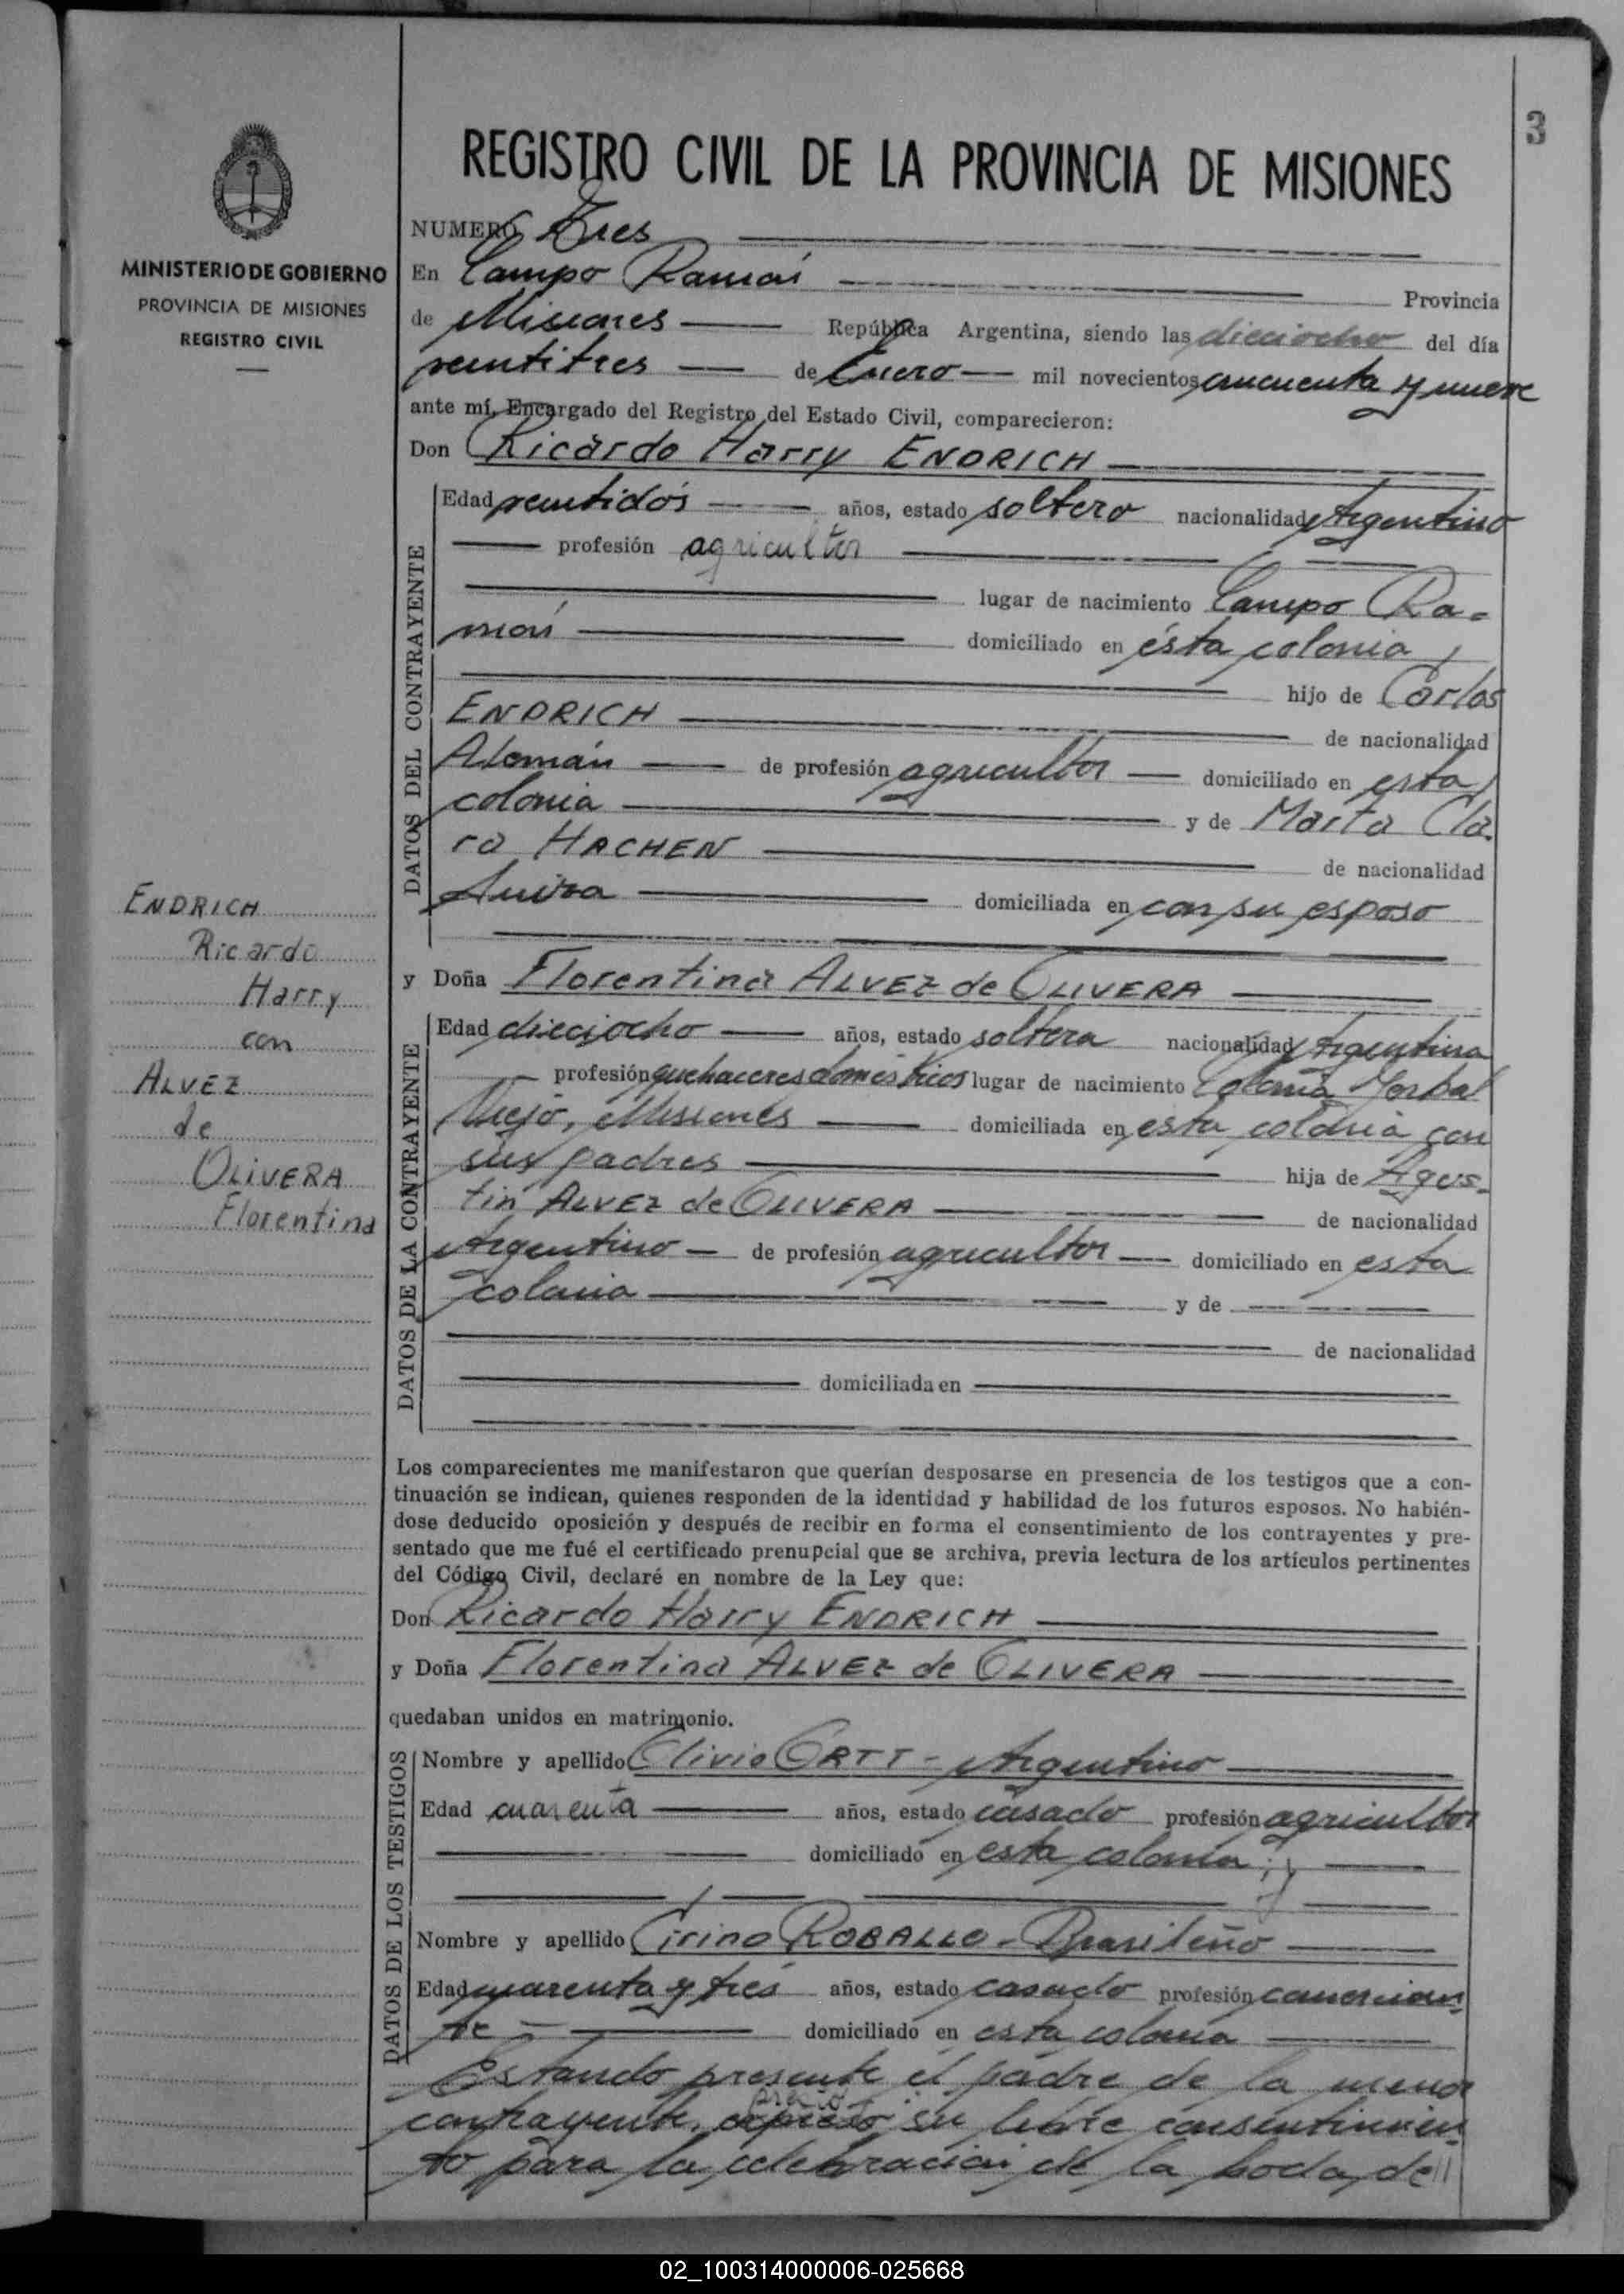 3
REGISTRO CIVIL DE LA PROVINCIA DE MISIONES
MINISTERIO DE GOBIERNO
PROVINCIA DE MISIONES
REGISTRO CIVIL
NUMERO Tres
En Campo Ramón Provincia
de Misiones República Argentina, siendo las dieciocho del día
veintitres de Enero mil novecientos cincuenta y nueve
ante mí, Encargado del Registro del Estado Civil, comparecieron:
Don Ricardo Harry ENDRICH
DATOS DEL CONTRAYENTE
Edad veintidós años, estado soltero nacionalidad Argentino
profesión agricultor
lugar de nacimiento Campo Ra-
món domiciliado en ésta colonia,
hijo de Carlos
ENDRICH de nacionalidad
Alemán de profesión agricultor domiciliado en esta
colonia y de Marta Cla-
ra HACHEN de nacionalidad
Suiza domiciliada en con su esposo
y Doña Florentina ALVEZ de OLIVERA
DATOS DE LA CONTRAYENTE
Edad dieciocho años, estado soltera nacionalidad Argentina
profesión quehaceres domésticos lugar de nacimiento Colonia Yerbal
Viejo, Misiones domiciliada en esta colonia con
sus padres hija de Agus-
tín ALVEZ de OLIVERA de nacionalidad
Argentino de profesión agricultor domiciliado en esta
colonia y de
de nacionalidad
domiciliada en
ENDRICH
Ricardo
Harry
con
ALVEZ
de
OLIVERA
Florentina
Los comparecientes me manifestaron que querían desposarse en presencia de los testigos que a con-
tinuación se indican, quienes responden de la identidad y habilidad de los futuros esposos. No habién-
dose deducido oposición y después de recibir en forma el consentimiento de los contrayentes y pre-
sentado que me fué el certificado prenupcial que se archiva, previa lectura de los artículos pertinentes
del Código Civil, declaré en nombre de la Ley que:
Don Ricardo Harry ENDRICH
y Doña Florentina ALVEZ de OLIVERA
quedaban unidos en matrimonio.
DATOS DE LOS TESTIGOS
Nombre y apellido Olivio ORTT - Argentino
Edad cuarenta años, estado casado profesión agricultor
domiciliado en esta colonia; y
Nombre y apellido Cirino ROBALLO - Brasileño
Edad cuarenta y tres años, estado casado profesión comercian-
te domiciliado en esta colonia
Estando presente el padre de la menor
contrayente, su libre consentimien-
to para la celebración de la boda, de
02_100314000006-025668